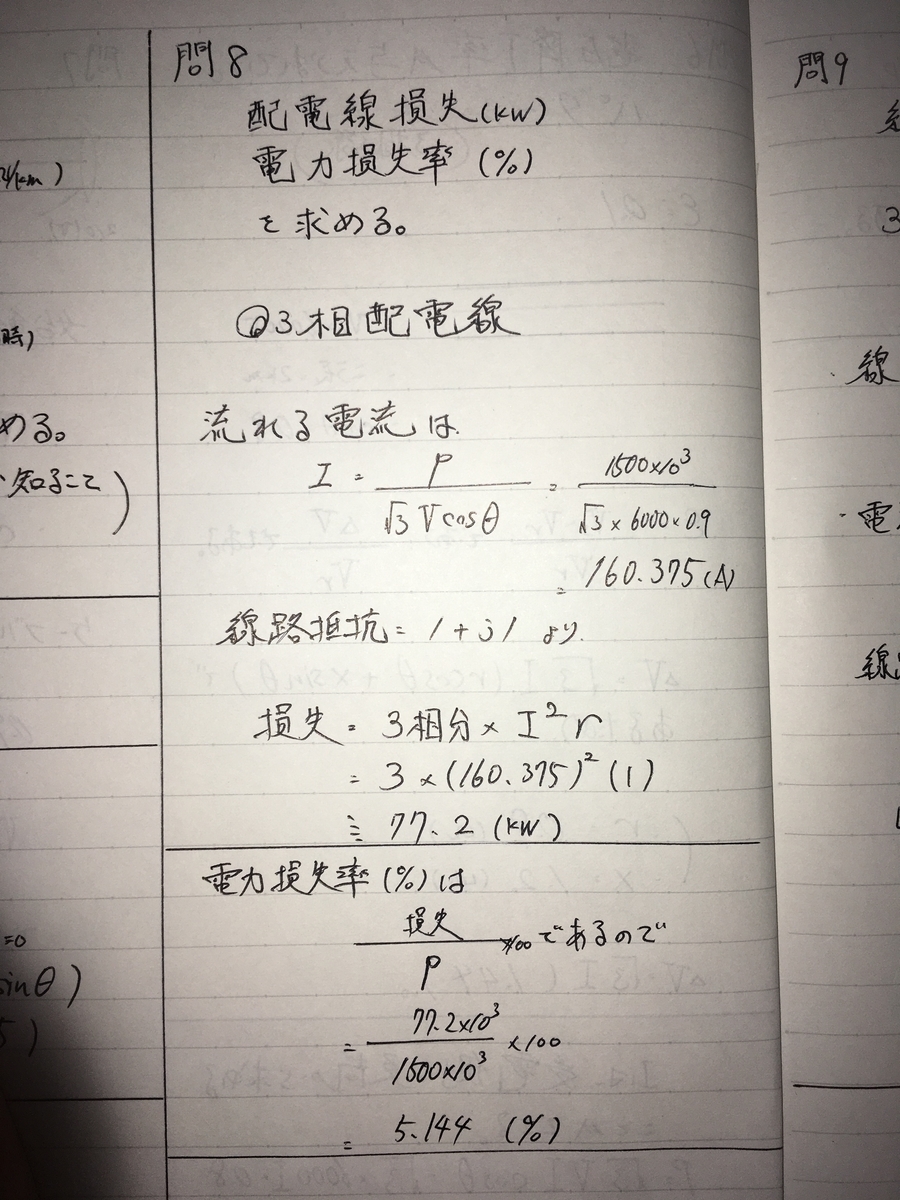 問8
配電線損失(kW)
電力損失率 (%)
を求める。
3相配電線
流れる電流は
I = P / √3 V cosθ = 1500×10³ / √3 × 6000 × 0.9
= 160.375 (A)
線路抵抗 = 1 + j1 より
損失 = 3相分 × I² r
= 3 × (160.375)² (1)
≒ 77.2 (kW)
電力損失率 (%) は
損失 / P ×100 であるので
= 77.2×10³ / 1500×10³ ×100
= 5.144 (%)
める。
知ること)
時)
=0
sinθ)
5)
問9
3
線
・電